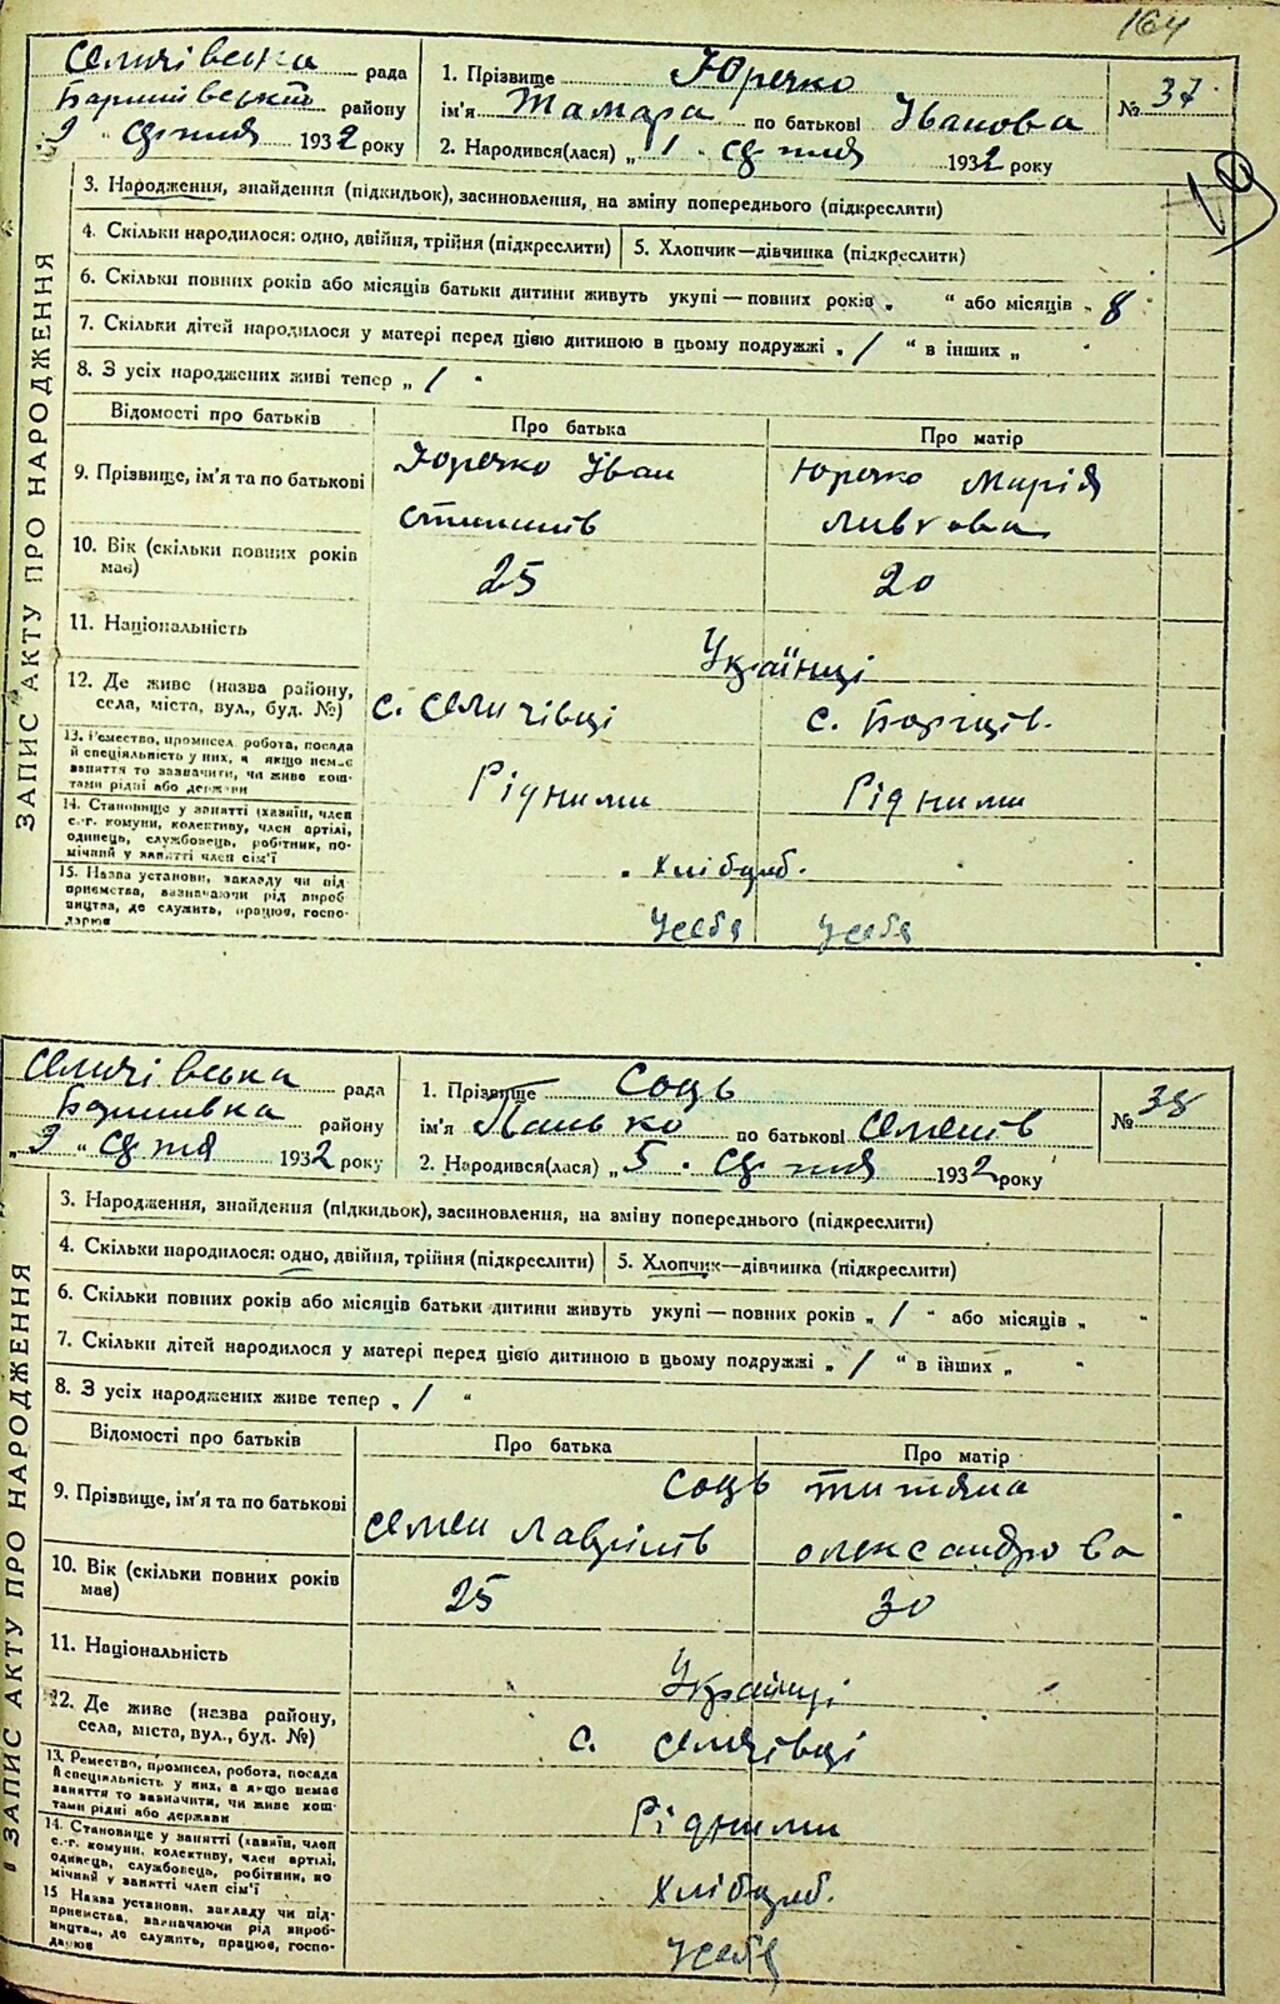 164
Селичівська рада
Баришівський району
9 " січня 1932 року
1. Прізвище Юречко
ім'я Тамара по батькові Іванова
2. Народився(лася) „ 1 . січня 1932 року
№ 37
19
ЗАПИС АКТУ ПРО НАРОДЖЕННЯ
3. Народження, знайдення (підкидьок), засиновлення, на зміну попереднього (підкреслити)
4. Скільки народилося: одно, двійня, трійня (підкреслити) 5. Хлопчик—дівчинка (підкреслити)
6. Скільки повних років або місяців батьки дитини живуть укупі — повних років „ “ або місяців „ 8
7. Скільки дітей народилося у матері перед цією дитиною в цьому подружжі „ / “ в інших „
8. З усіх народжених живі тепер „ / “
Відомості про батьків Про батька Про матір
9. Прізвище, ім'я та по батькові
Юречко Іван Юречко Марія
10. Вік (скільки повних років має)
25 20
11. Національність
Українці
12. Де живе (назва району,
села, міста, вул., буд. №)
с. Селичівці с.
13. Ремество, промисел, робота, посада
й спеціяльність у них, а якщо немає
заняття то зазначити, чи живе кош-
тами рідні або держави
Рідними Рідними
14. Становище у занятті (хазяїн, член
с.-г. комуни, колективу, член артілі,
одинець, службовець, робітник, по-
мічний у занятті член сім'ї
Хлібороб.
15. Назва установи, закладу чи під-
приємства, зазначаючи рід вироб-
ництва, де служить, працює, госпо-
дарює
У себя У себя
Селичівська рада
Баришівка району
„ 9 “ січня 1932 року
1. Прізвище Соць
ім'я Панько по батькові Семенів
2. Народився(лася) „ 5 . січня 1932 року
№ 38
ЗАПИС АКТУ ПРО НАРОДЖЕННЯ
3. Народження, знайдення (підкидьок), засиновлення, на зміну попереднього (підкреслити)
4. Скільки народилося: одно, двійня, трійня (підкреслити) 5. Хлопчик—дівчинка (підкреслити)
6. Скільки повних років або місяців батьки дитини живуть укупі — повних років „ / “ або місяців „ “
7. Скільки дітей народилося у матері перед цією дитиною в цьому подружжі „ / “ в інших „ “
8. З усіх народжених живе тепер „ / “
Відомості про батьків Про батька Про матір
9. Прізвище, ім'я та по батькові
Соць Титяна
Семен Лаврінів Олександрова
10. Вік (скільки повних років має)
25 30
11. Національність
Українці
12. Де живе (назва району,
села, міста, вул., буд. №)
с. Селичівці
13. Ремество, промисел, робота, посада
й спеціяльність у них, а якщо немає
заняття то зазначити, чи живе кош-
тами рідні або держави
Рідними
14. Становище у занятті (хазяїн, член
с.-г. комуни, колективу, член артілі,
одинець, службовець, робітник, по
мічний у занятті член сім'ї
Хлібороб.
15 Назва установи, закладу чи під-
приємства, зазначаючи рід вироб-
ництва, де служить, працює, госпо-
дарює
У себя